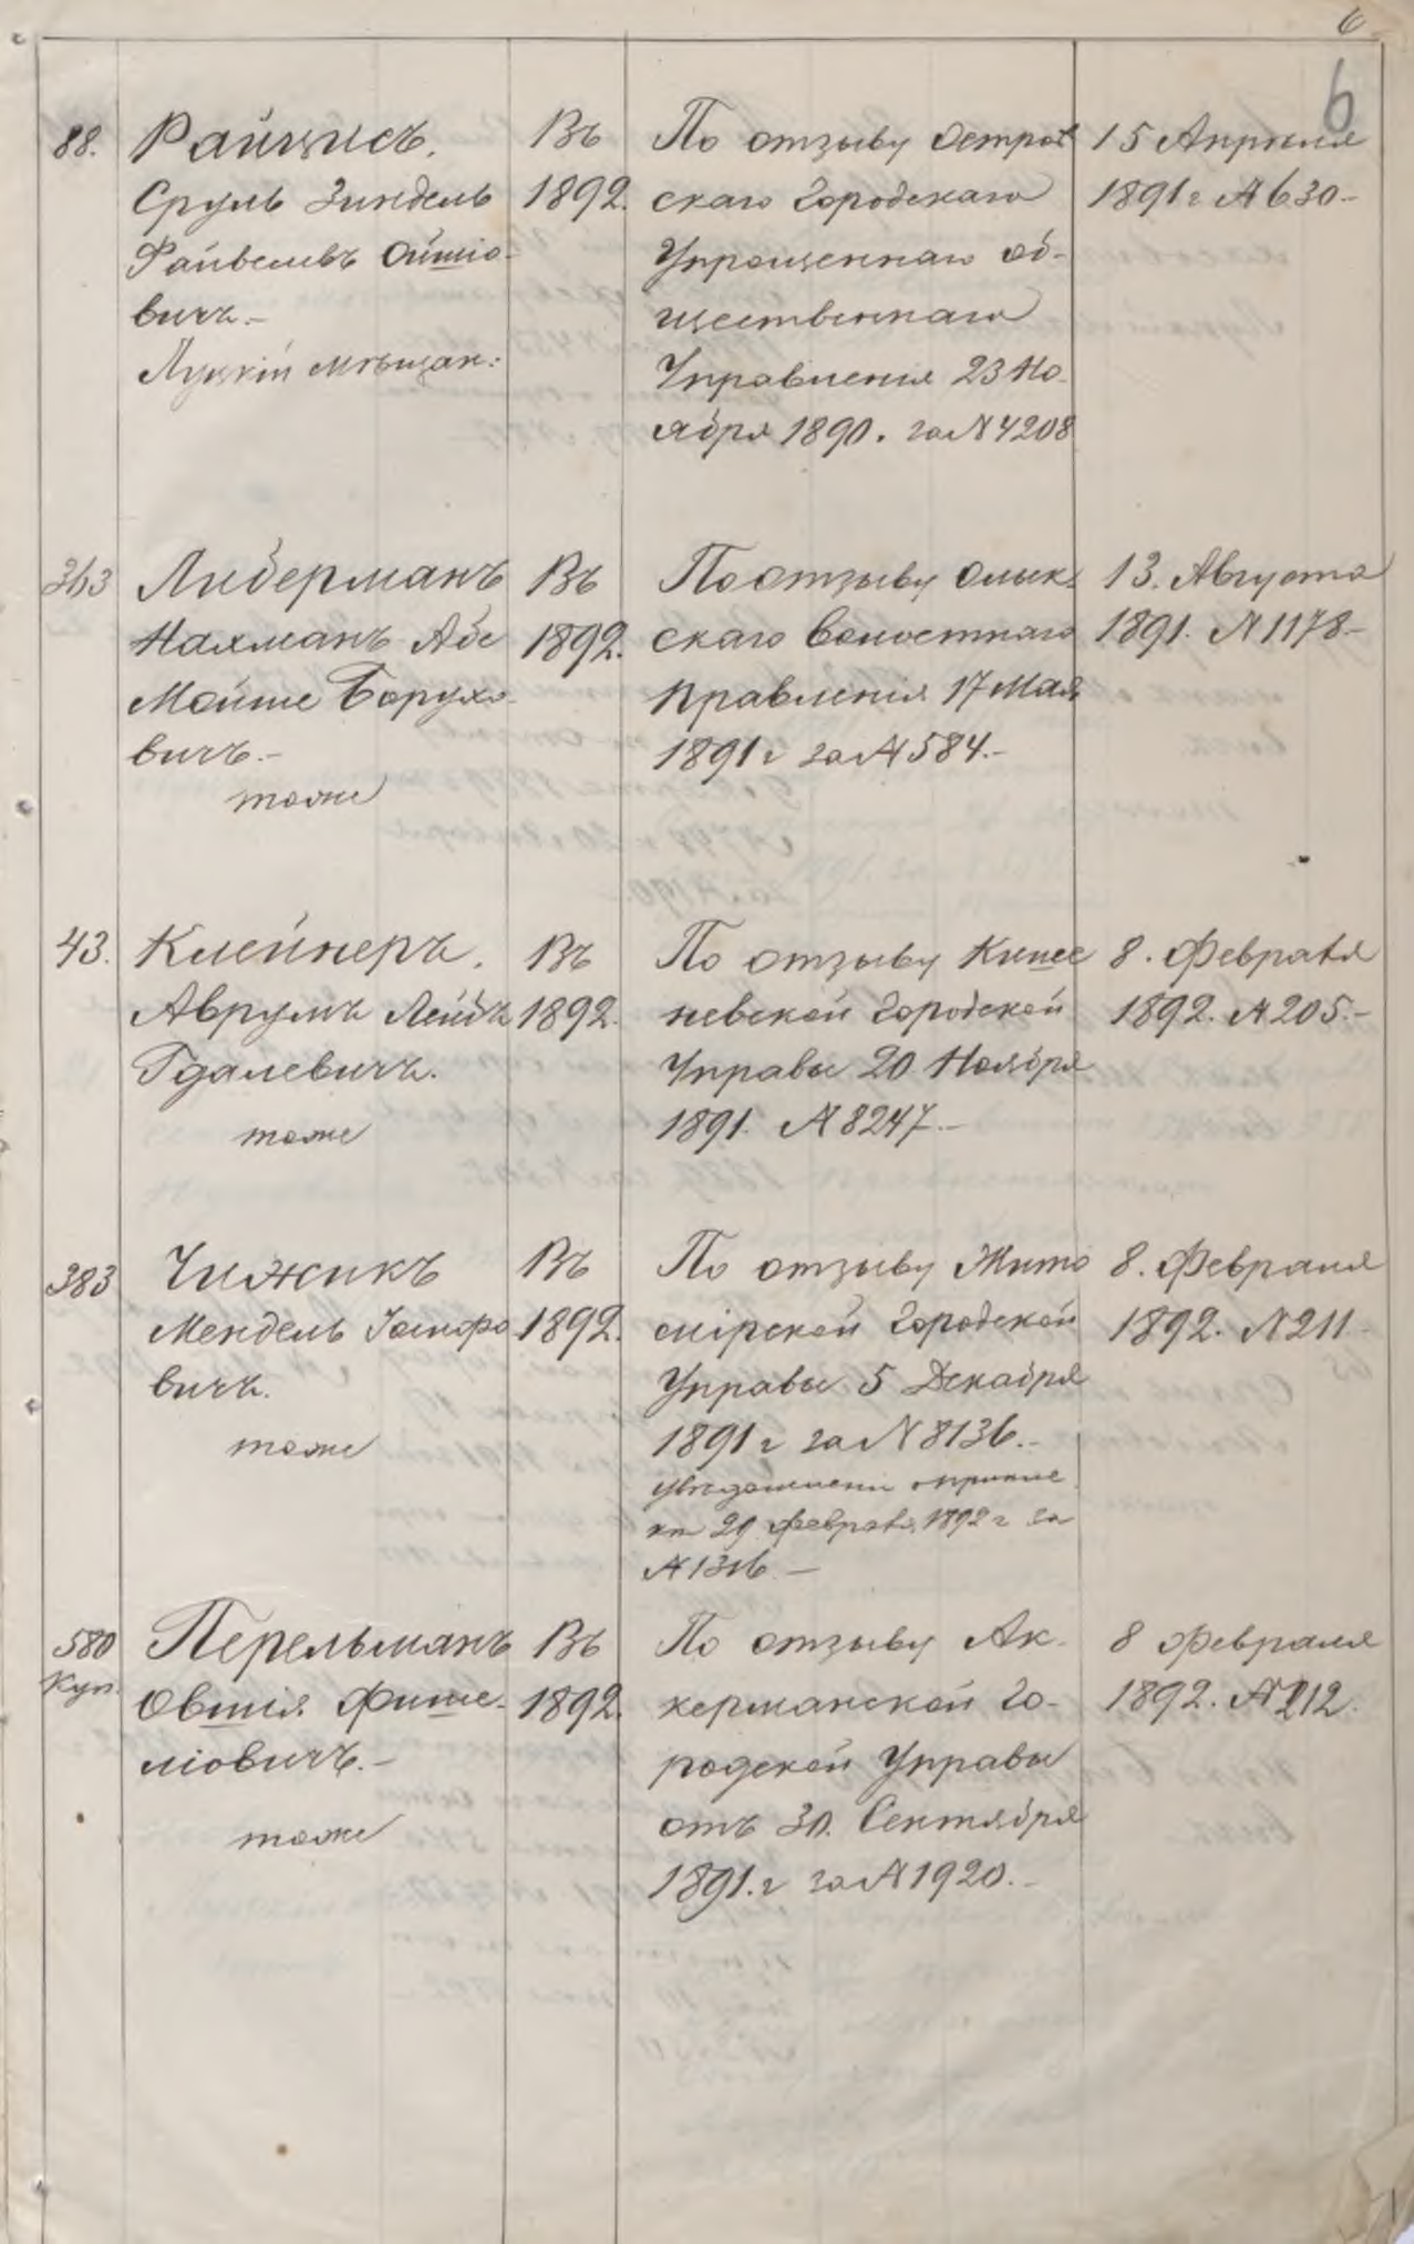 6
6
88.
Райцисъ.
Сруль Зиндель
Файвелевъ Ойшіо-
вичъ.-
Луцкій мѣщан:
Въ
1892.
По отзыву Остров
скаго Городскаго
Упрощеннаго Об-
щественнаго
Управленія 23 Но-
ября 1890. за №4208
15 Апрѣля
1891 г №630-
363
Либерманъ
Нахманъ Абе
Мойше Борухо-
вичъ.-
тоже
Въ
1892.
По отзыву Олык-
скаго Волостнаго
Правленія 17 Мая
1891 г за №584.-
13. Августа
1891. №1178-
43.
Клейнеръ.
Аврумъ Лейбъ
Гдалевичъ.
тоже
Въ
1892.
По отзыву Кише
невской Городской
Управы 20 Ноября
1891. №8247.-
8. Февраля
1892. №205.-
383
Чижикъ
Мендель Іосифо
вичъ.
тоже
Въ
1892.
По отзыву Жито
мірской Городской
Управы 5 Декабря
1891 г за №8136.-
29 Февраля 1892 г за
№1316.-
8. Февраля
1892. №211-
580
Куп.
Перельманъ
Овшія Фише-
ліовичъ.-
тоже
Въ
1892.
По отзыву Ак-
керманской Го-
родской Управы
отъ 30. Сентября
1891. г за №1920.-
8 Февраля
1892. №212.